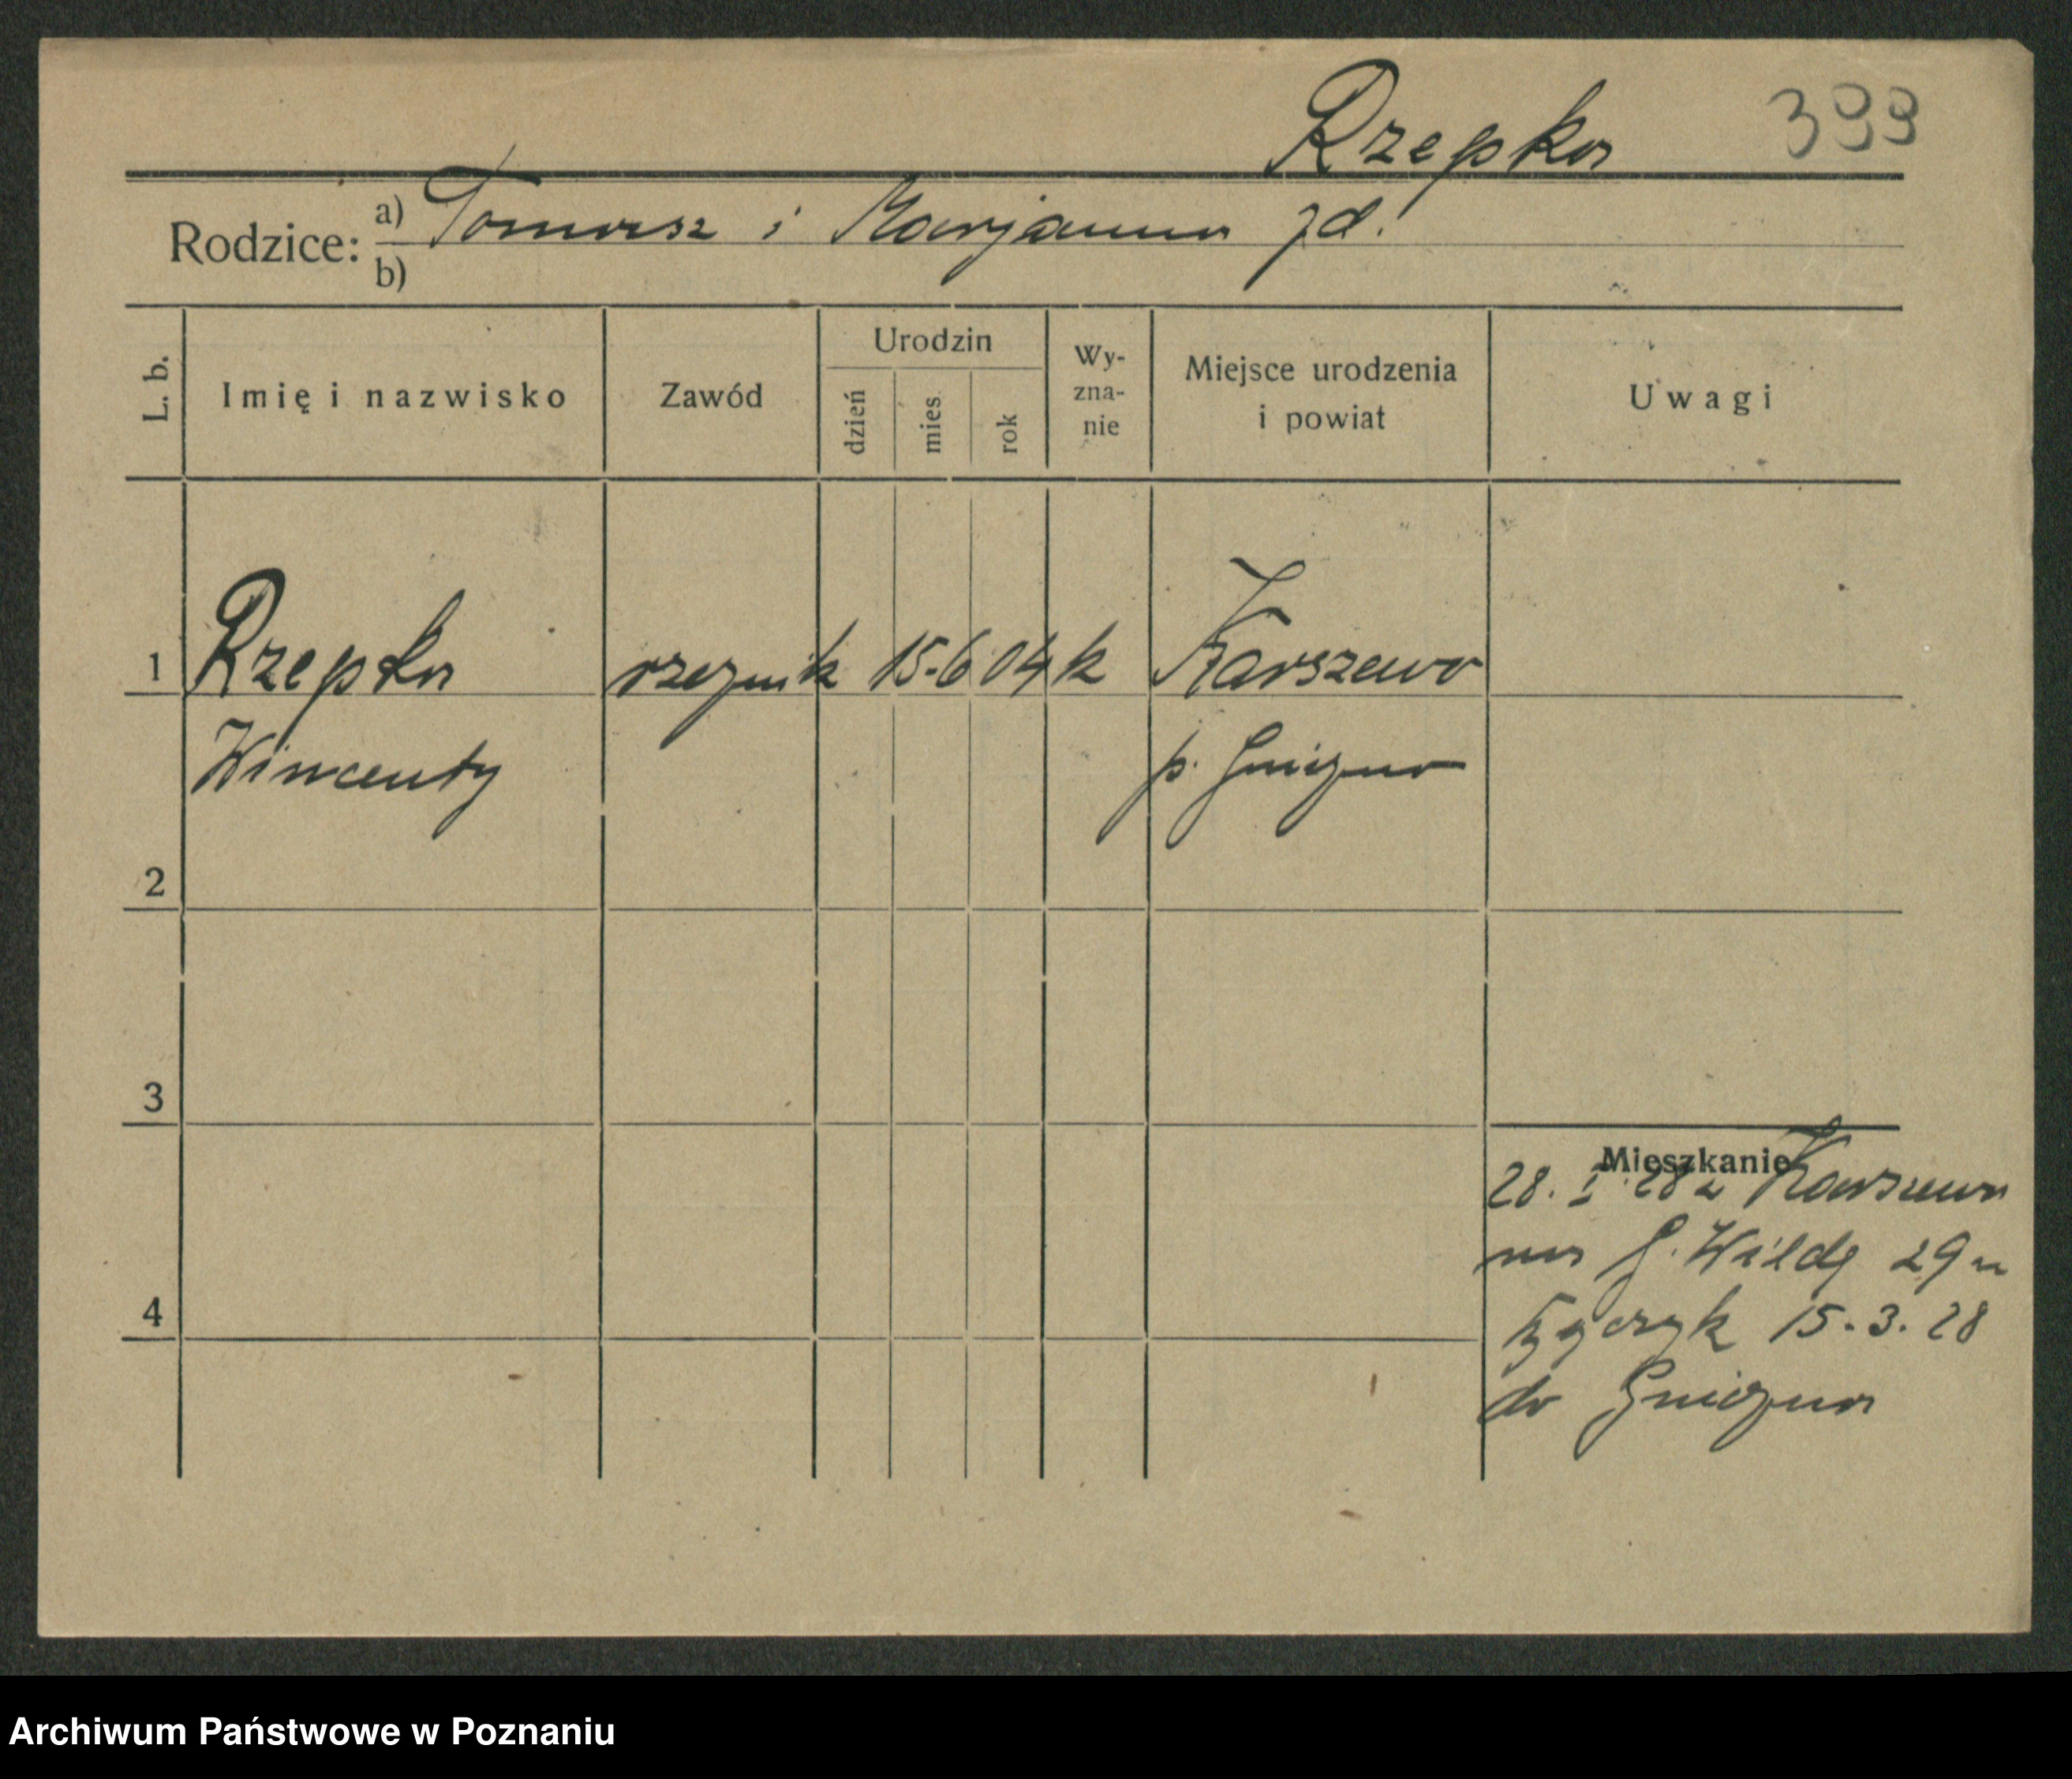 Rzepka 399
Rodzice: a) Tomasz i Marjanna jd.
b)
L. b. Imię i nazwisko Zawód Urodzin dzień mies. rok Wy-zna-nie Miejsce urodzenia i powiat Uwagi
1 Rzepka rzeznik 15.6 04 k Karszewo
Wincenty p. Gniezno
2
3
Mieszkanie
28. I. 28 z Karszewa
na G. Wildę 29 u
4
15.3.28
do Gniezna
Archiwum Państwowe w Poznaniu